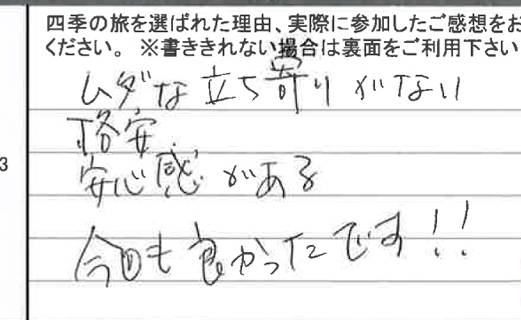 四季の旅を選ばれた理由、実際に参加したご感想をお
ください。 ※書ききれない場合は裏面をご利用下さい
ムダな立ち寄りがない
格安
3
安心感がある
今回も良かったです!!